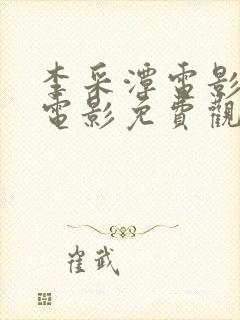 李采潭電影
電影免費觀
崔武